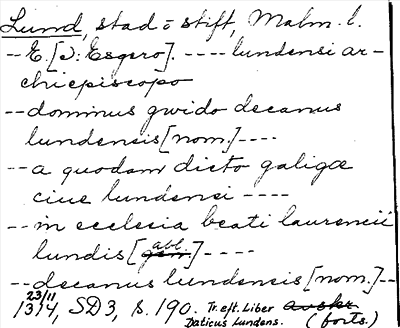 Lund, stad o stift, Malm. l.
-- E. [ɔ: Esgero]. ---- lundensi ar-
chiepiscopo
-- dominus gwido decanus
lundensis [nom.] ----
-- a quodam dicto galigæ
ciue lundensi ----
-- in ecclesia beati laurencii
lundis [gen. abl.] ----
-- decanus lundensis [nom.] --
23/11 1314, SD3, s. 190. Tr. eft. Liber avskr.
Daticus Lundens. (forts.)